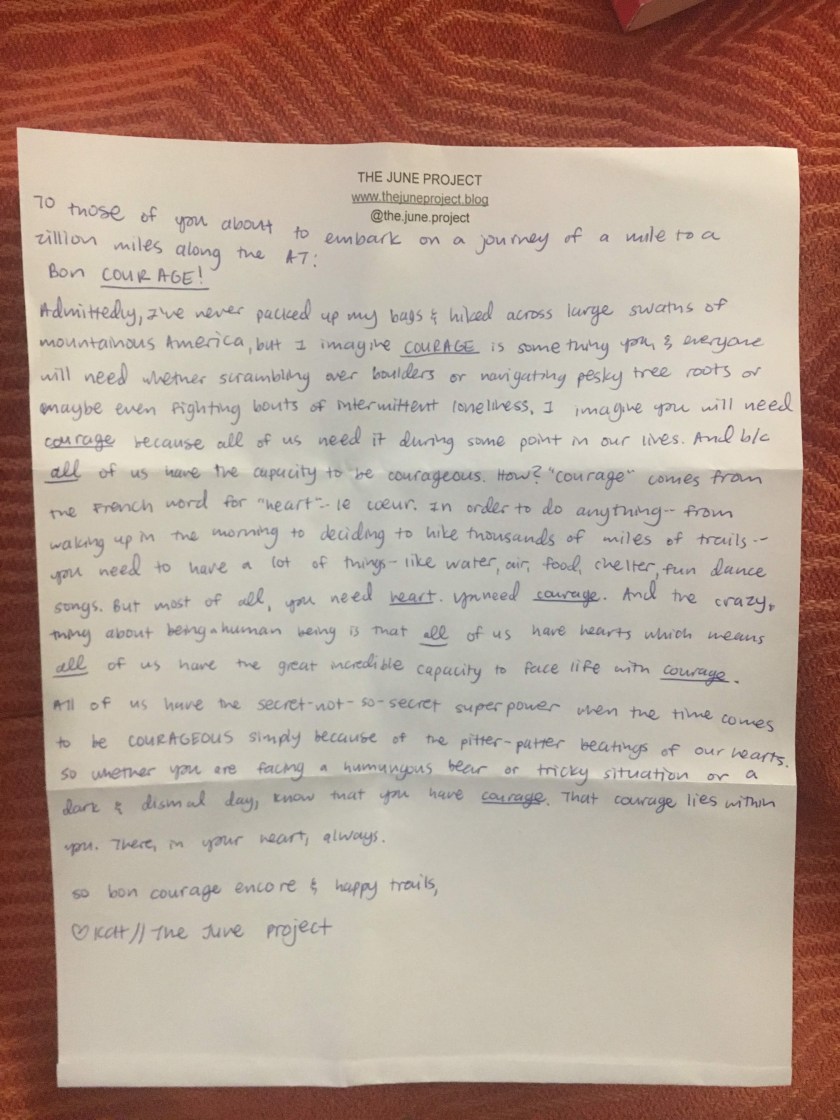 THE JUNE PROJECT
www.thejuneproject.blog
@the.june.project
To those of you about to embark on a journey of a mile to a
zillion miles along the AT:
Bon COURAGE!
Admittedly, I've never packed up my bags & hiked across large swaths of
mountainous America, but I imagine COURAGE is something you & everyone
will need whether scrambling over boulders or navigating pesky tree roots or
maybe even fighting bouts of intermittent loneliness. I imagine you will need
courage because all of us need it during some point in our lives. And b/c
all of us have the capacity to be courageous. How? "courage" comes from
the French word for "heart"- le cœur. In order to do anything-- from
waking up in the morning to deciding to hike thousands of miles of trails--
you need to have a lot of things- like water, air, food, shelter, fun dance
songs. But most of all, you need heart. You need courage. And the crazy
thing about being a human being is that all of us have hearts which means
all of us have the great incredible capacity to face life with courage.
All of us have the secret-not-so-secret superpower when the time comes
to be COURAGEOUS simply because of the pitter-patter beatings of our hearts.
So whether you are facing a humungous bear or tricky situation or a
dark & dismal day, know that you have courage. That courage lies within
you. There, in your heart, always.
So bon courage encore & happy trails,
♡ KCH // The June Project